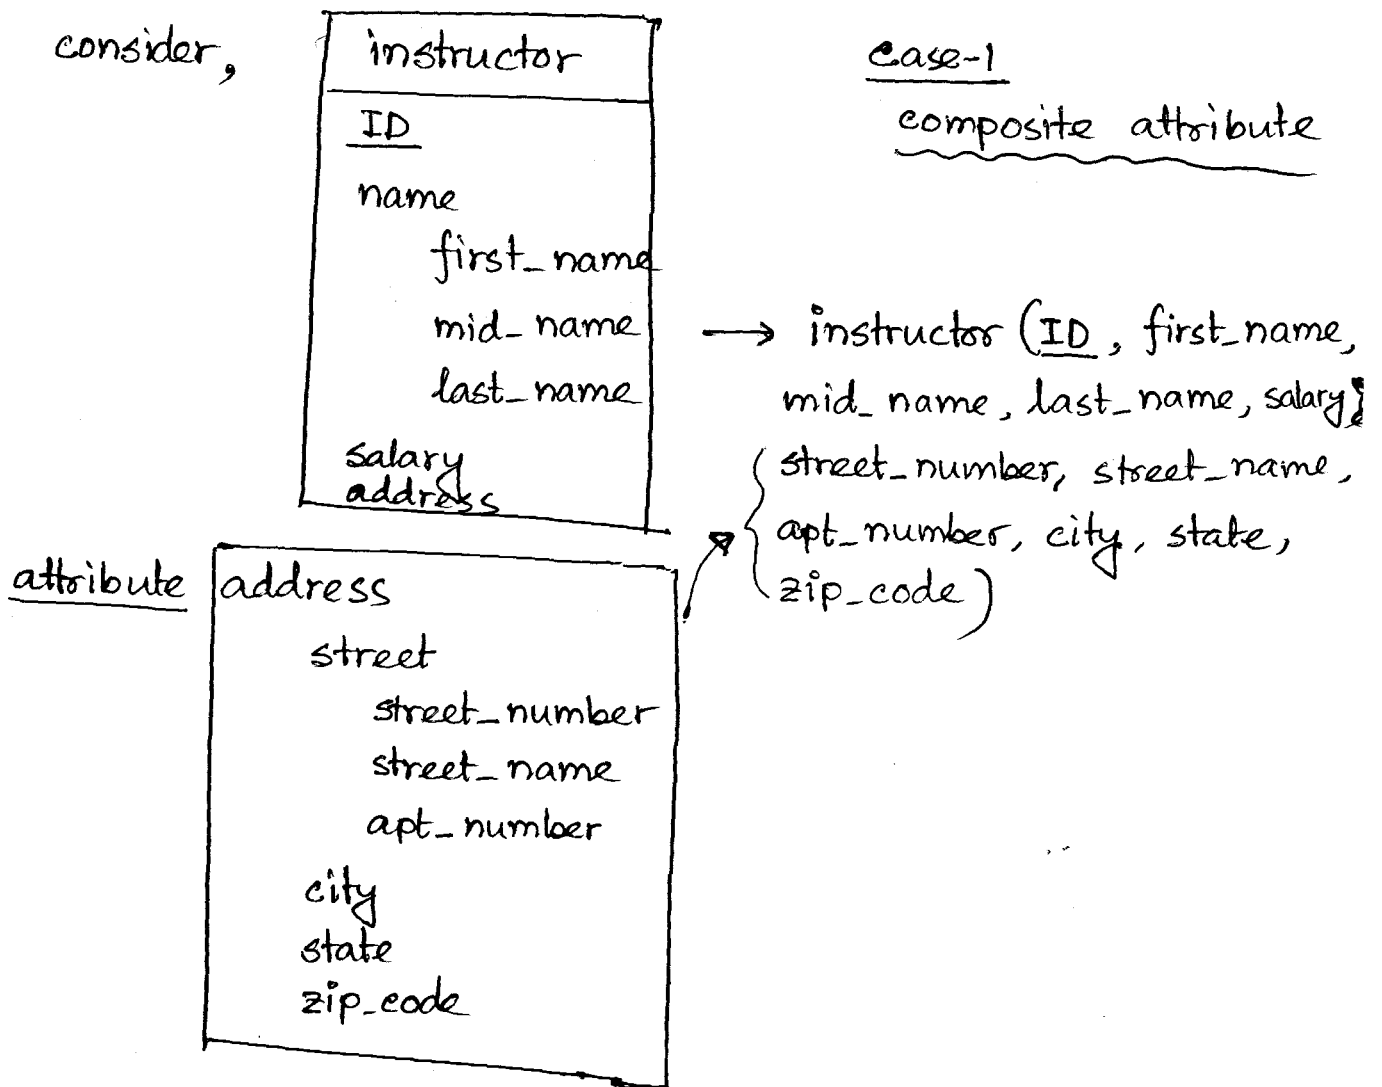 consider,
instructor
ID
name
first_name
mid_name
last_name
salary
address
case-1
composite attribute
→ instructor (ID, first_name,
mid_name, last_name, salary,
street_number, street_name,
apt_number, city, state,
zip_code)
attribute
address
street
street_number
street_name
apt_number
city
state
zip_code